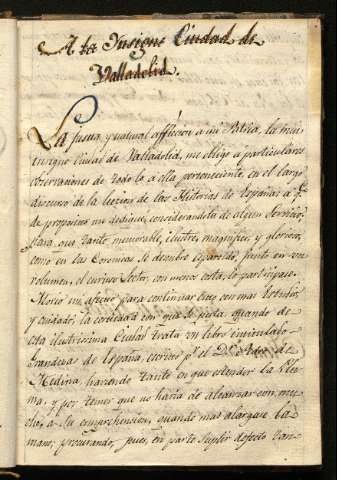 A la Insigne Ciudad de
Valladolid.
La justa, y natural affiçion a mi Patria, la mui
insigne Ciudad de Valladolid, me obligó à particulares
observaciones de todo lo a ella perteneciente, en el largo
discurso de la leccion de las Historias de España; a q.e
de proposito me dediqué, considerandolo de algun Servicio,
para que tanto memorable, ilustre, magnifico, y glorioso,
como en las Coronicas se descubre esparcido, junto en un
volumen, el curioso Lector, con menos costa, lo participase.
Moviò mi aficion para continuar esto, con mas estudio,
y cuidado, la cortedad con que se pinta, quando de
esta ilustrisima Ciudad trata un libro intitulado
Grandezas de España, escrito p.r el D.r Pedro de
Medina, haciendo tanto en que estender la Plu-
ma, y por temer que no havia de alcanzar con mu-
cho, a su comprehension, quando mas alargue la
mano; procurando, pues, en parte suplir defecto tan-